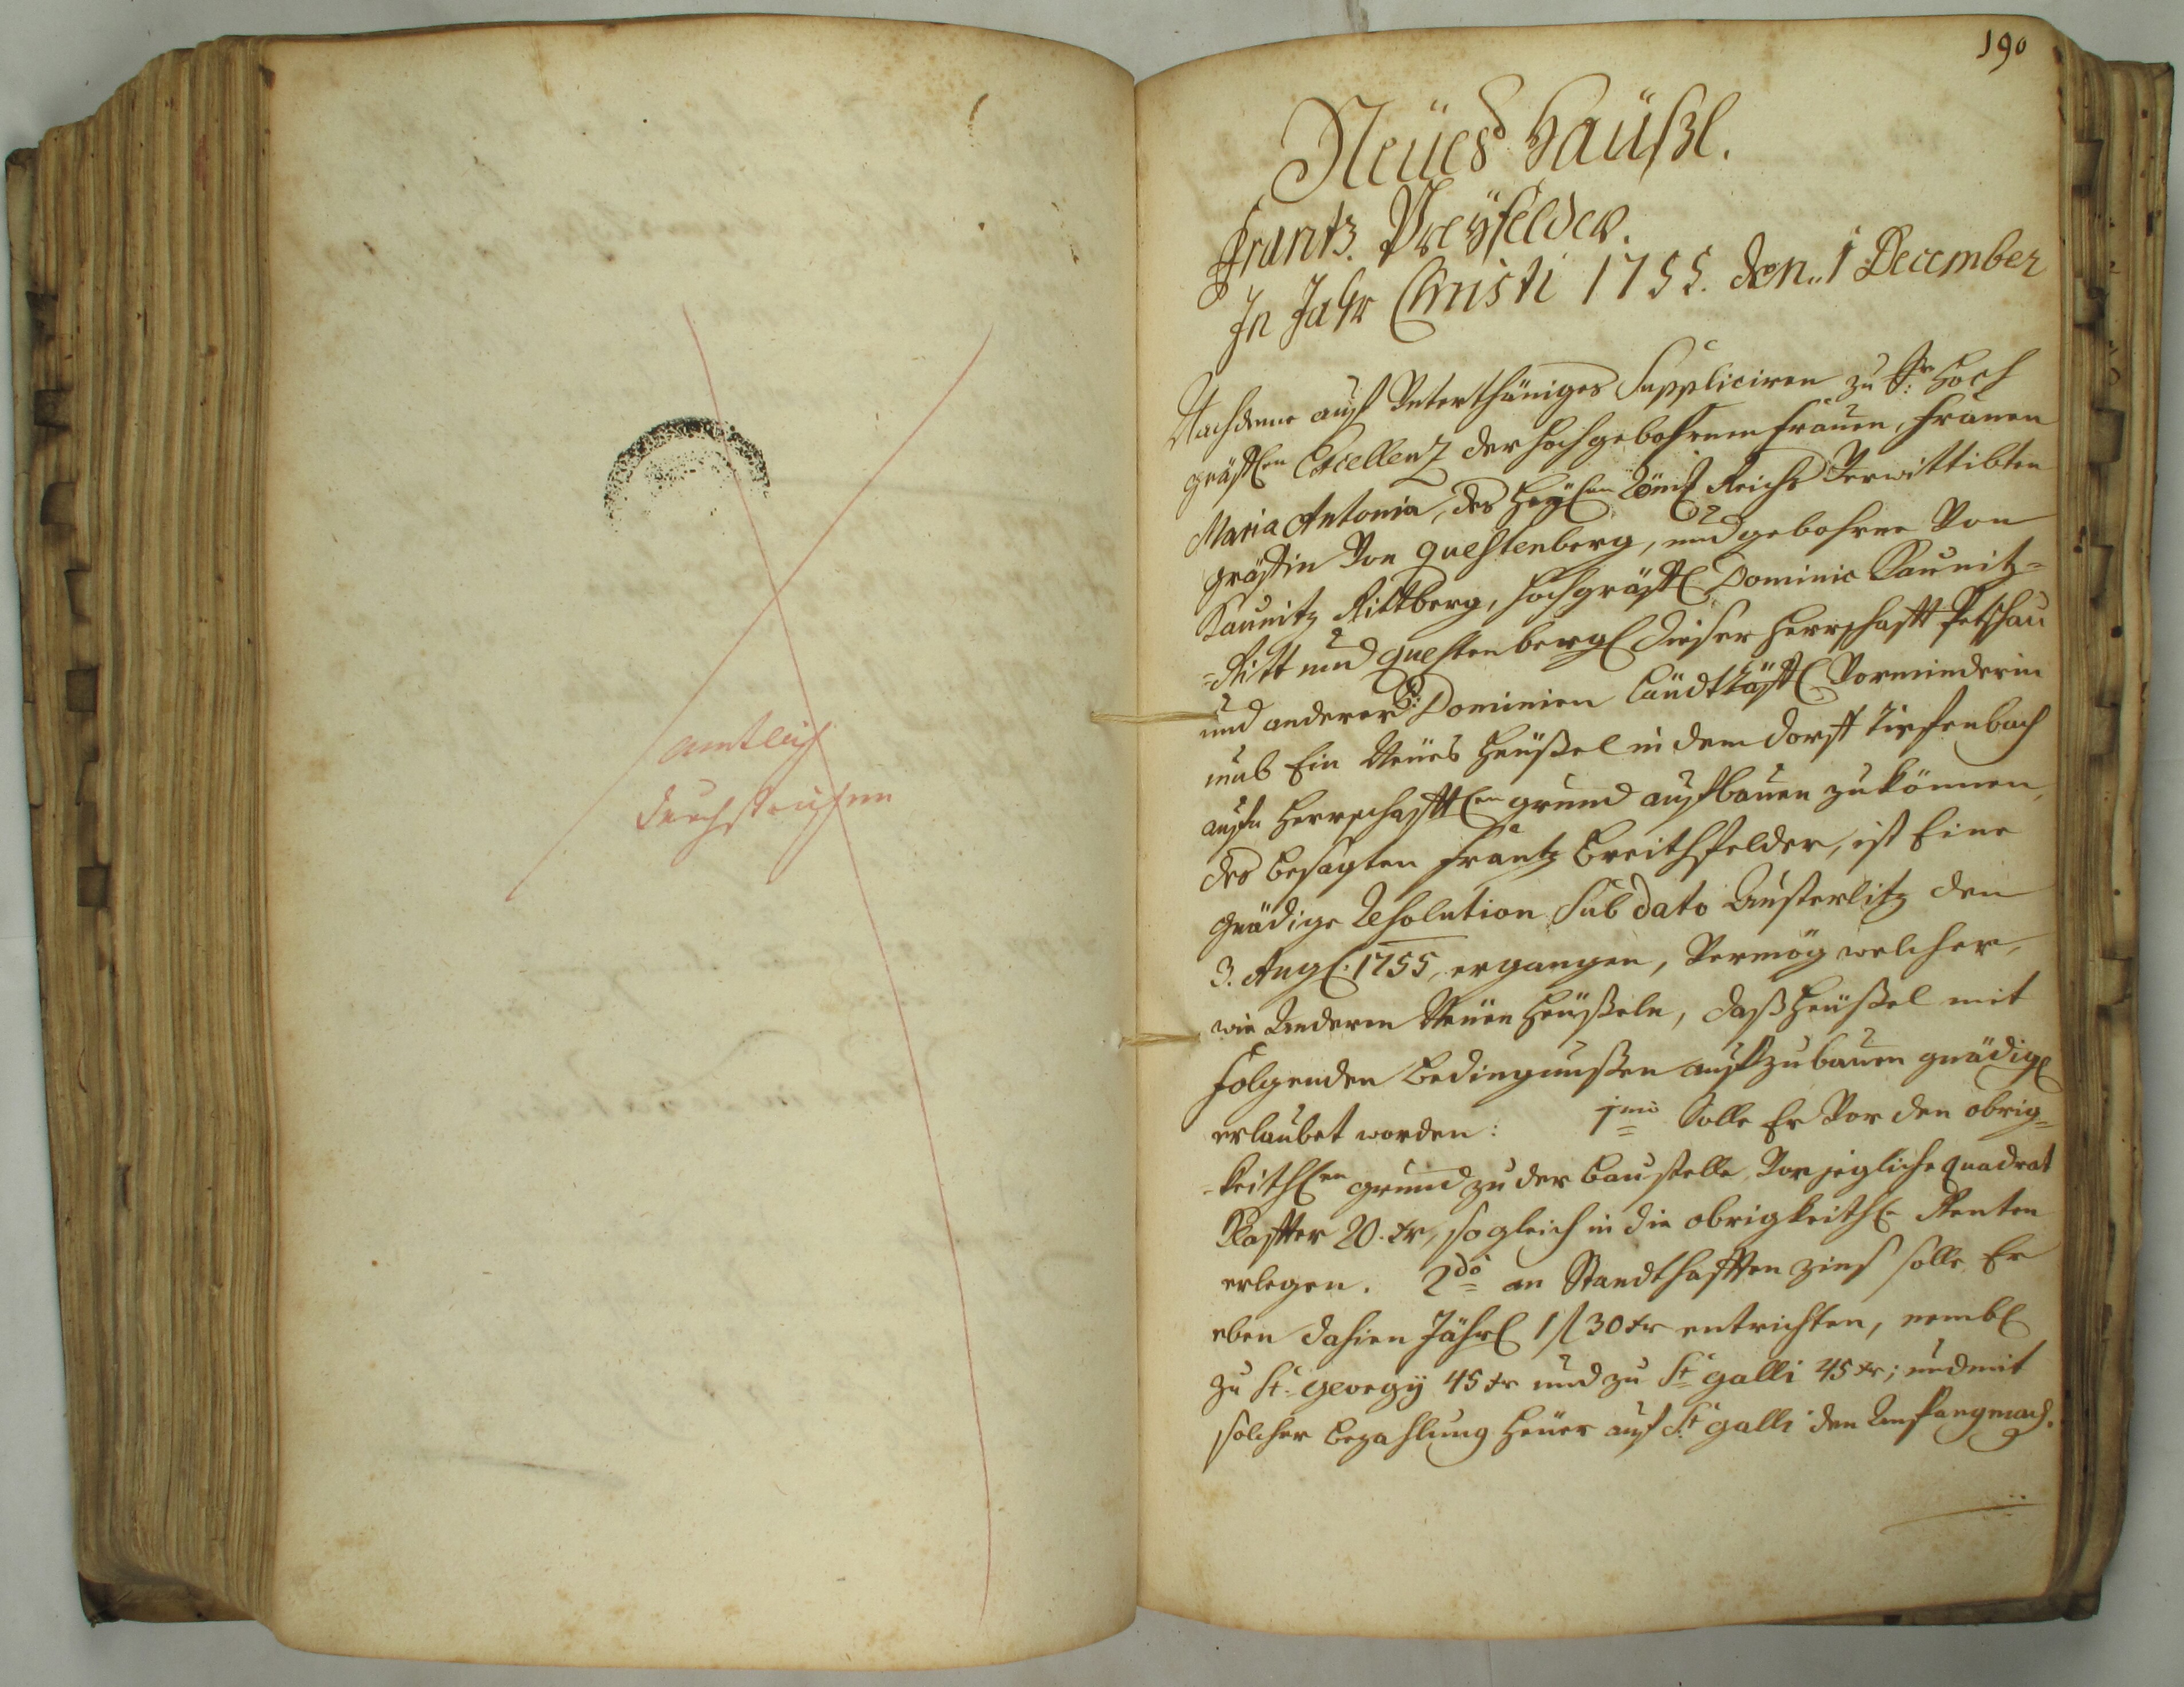 amtlich
durchstrichen
190
Neües Haüßl.
Frantz Preÿfelder.
In Jahr Christi 1755. den 1 December
Nachdeme auf Unterthäniges Suppliciren zu Sr. Hoch
gräfflen Excellenz der Hochgebohrnen Frauen, Frauen
Maria Antonia, des Heyllen Römf Reichs Verwittibten
gräffin Von Questenberg, und gebohrne Von
Kaunitz Rittberg, Hochgräffl Dominic Kaunitz=
=Ritt und Questenbergl dieser Herrschafft Petschau
und anderer Dominien Landtäffl Vorminderin
umb Ein Neües Heüßel in dem Dorff Tiefenbach
aufn Herrschafftlen grund aufbauen zu können,
des besagten Frantz Breithfelder, ist Eine
Gnädige Resolution sub dato Austerlitz den
3. Augl: 1755, ergangen, Vermög welcher,
wie Anderen Neüen Heüßeln, daß Heüßel mit
folgenden Bedingnußen aufzubauen gnädigl
erlaubet worden: 1mo Solle Er Vor den obrig=
=keithlen grund zu der Baustelle, Vor jegliche quadrat
Klaffter 20. xr, sogleich in die obrigkeithl Renten
erlegen. 2do an Standthafften Zins solle Er
eben dahien Jährl 1 fl 30 xr entrichten, nembl
zu St. Georgÿ 45 xr und zu St galli 45 xr; und mit
solcher Bezahlung Heüer auf St galli den Anfang mach.